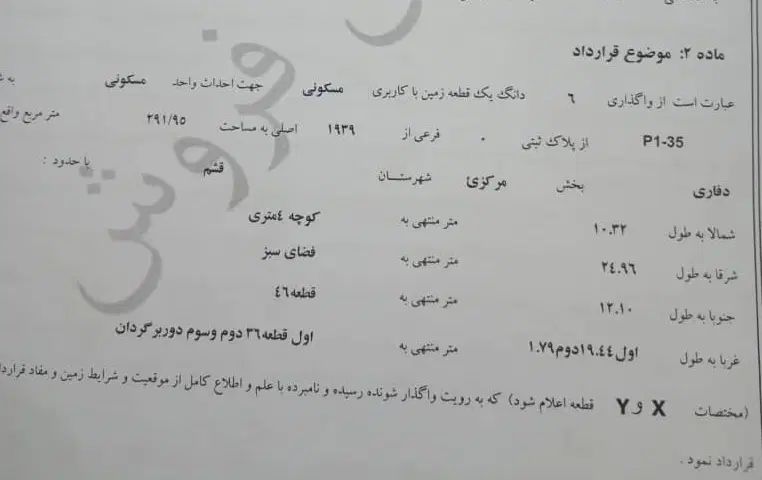 ماده ۲: موضوع قرارداد
عبارت است از واگذاری ۶ دانگ یک قطعه زمین با کاربری مسکونی جهت احداث واحد مسکونی به
P1-35 از پلاک ثبتی ۰ فرعی از ۱۹۳۹ اصلی به مساحت ۲۹۱/۹۵ متر مربع واقع
دفاری بخش مرکزئ شهرستان قشم با حدود :
شمالا به طول ۱۰.۳۲ متر منتهی به کوچه ٤متری
شرقا به طول ۲٤.۹۶ متر منتهی به فضای سبز
جنوبا به طول ۱۲.۱۰ متر منتهی به قطعه٤۶
غربا به طول اول۱۹.٤٤دوم۱.۷۹ متر منتهی به اول قطعه۳۶ دوم وسوم دوربرگردان
(مختصات X و Y قطعه اعلام شود) که به رویت واگذار شونده رسیده و نامبرده با علم و اطلاع کامل از موقعیت و شرایط زمین و مفاد قرارداد
قرارداد نمود .
فروش